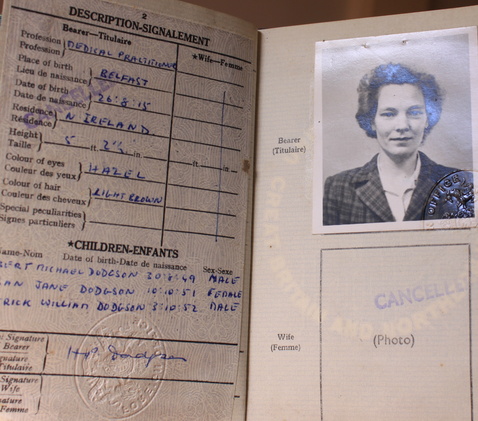 2
DESCRIPTION-SIGNALEMENT
Bearer—Titulaire
★Wife—Femme
Profession
Profession
MEDICAL PRACTITIONER
Place of birth
Lieu de naissance
BELFAST
Date of birth
Date de naissance
26·8·15
Residence
Résidence
N IRELAND
Height
Taille
5 ft. in.
ft. in.
Colour of eyes
Couleur des yeux
HAZEL
Colour of hair
Couleur des cheveux
LIGHT BROWN
Special peculiarities
Signes particuliers
★CHILDREN-ENFANTS
Name-Nom Date of birth-Date de naissance Sex-Sexe
MICHAEL DODGSON 30·8·49 MALE
JANE DODGSON 10·10·51 FEMALE
WILLIAM DODGSON 3·10·52 MALE
Signature
Bearer
Titulaire
Dodgson
Signature
Wife
Femme
Bearer
(Titulaire)
Wife
(Femme)
CANCELLE
(Photo)